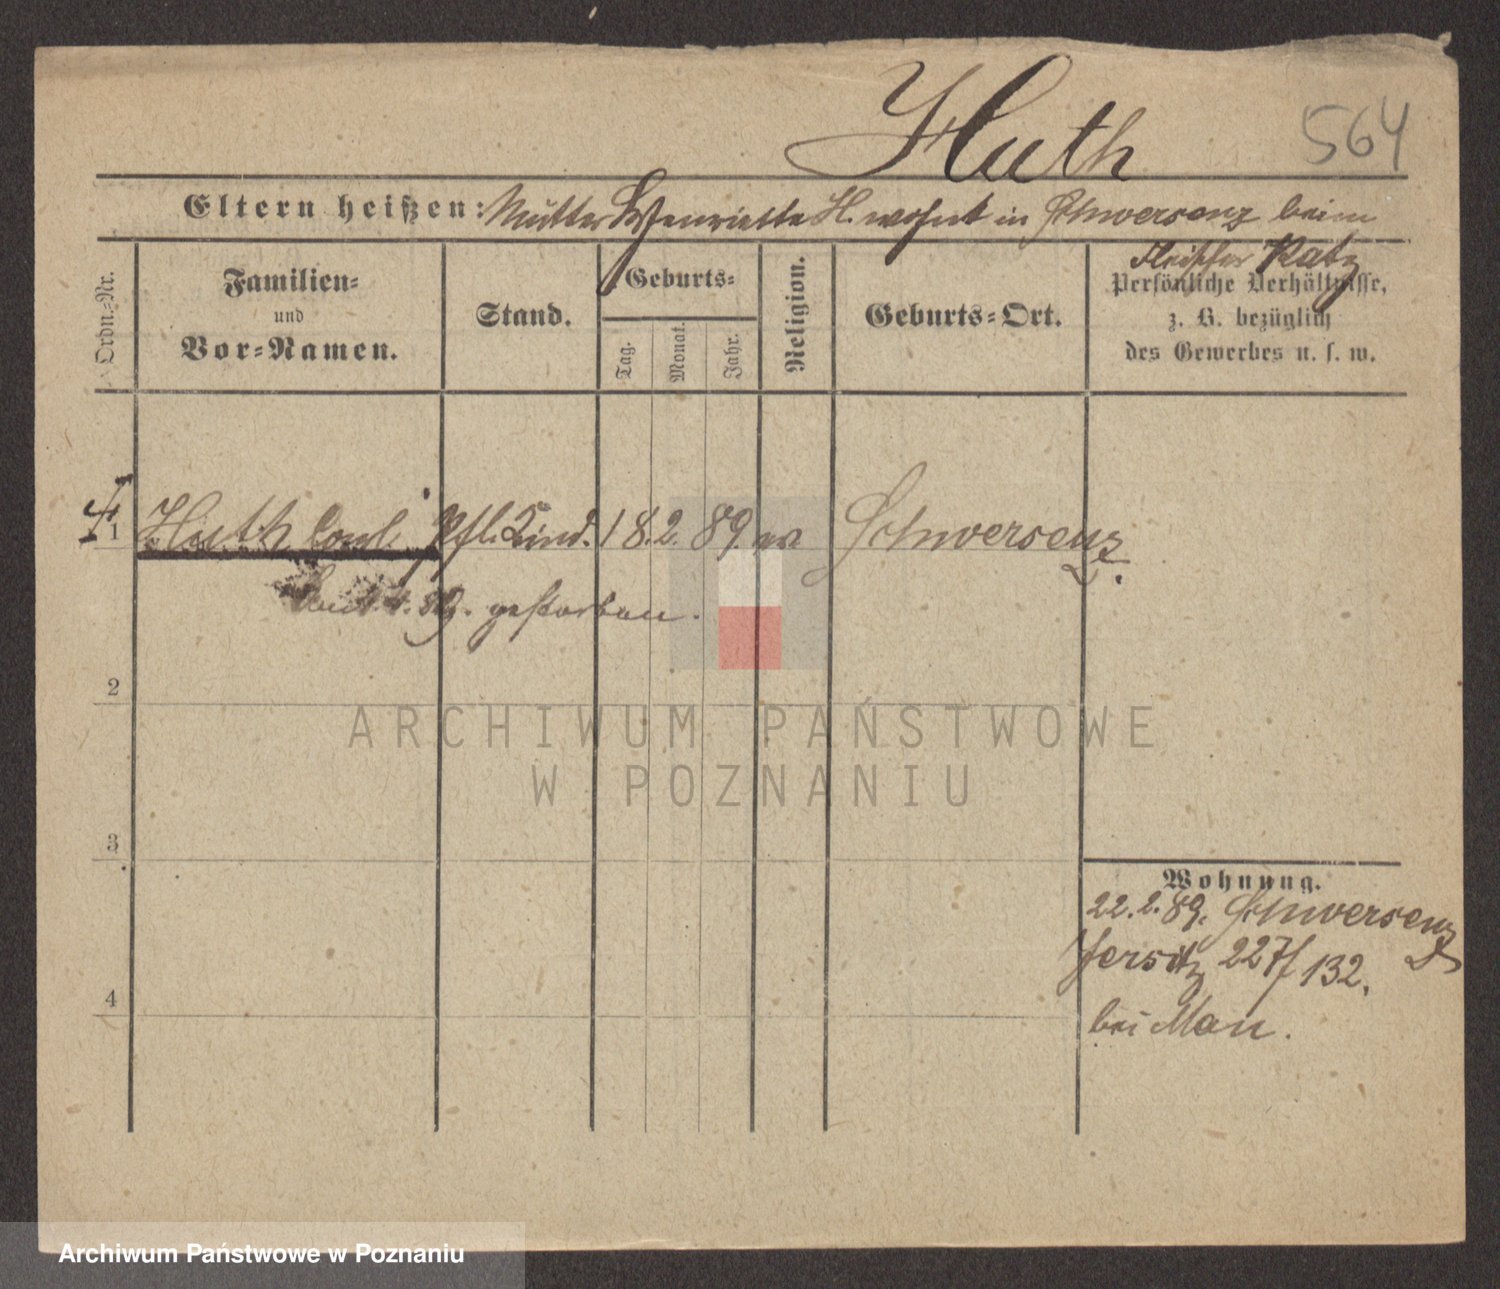 Huth
564
Eltern heißen: Mutter Henriette H. wohnt in Schwersenz beim
Fleischer Katz
Ordn.-Nr.
Familien-
und
Vor-Namen.
Stand.
Geburts-
Tag.
Monat.
Jahr.
Religion.
Geburts-Ort.
Persönliche Verhältnisse,
z. B. bezüglich
des Gewerbes u. s. w.
1 Huth Pfl. Kind. 18. 2. 89. Schwersenz.
4. 89. gestorben.
2
3
4
Wohnung.
22. 2. 89. Schwersenz
Jersitz 227/132.
bei Man.
ARCHIWUM PAŃSTWOWE
W POZNANIU
Archiwum Państwowe w Poznaniu